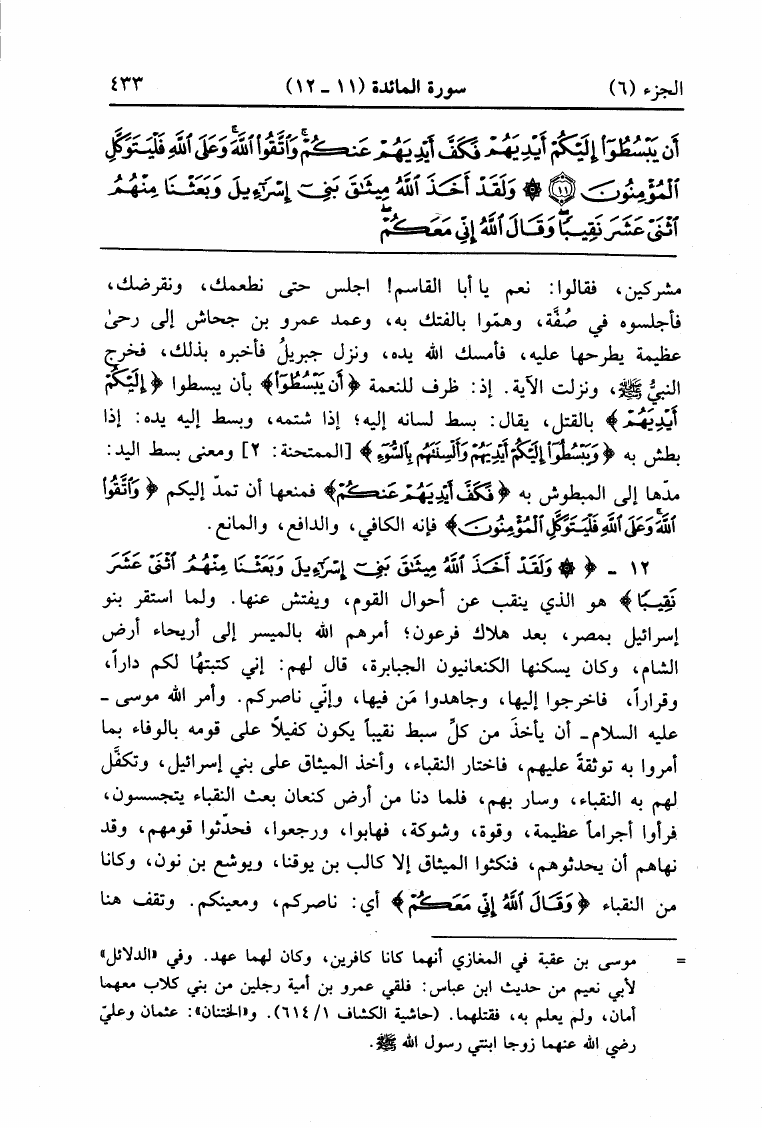 الجزء (٦) سورة المائدة (١١ - ١٢) ٤٣٣
أَن يَبْسُطُوٓا۟ إِلَيْكُمْ أَيْدِيَهُمْ فَكَفَّ أَيْدِيَهُمْ عَنكُمْ ۖ وَٱتَّقُوا۟ ٱللَّهَ ۚ وَعَلَى ٱللَّهِ فَلْيَتَوَكَّلِ
ٱلْمُؤْمِنُونَ ﴿١١﴾ ۞ وَلَقَدْ أَخَذَ ٱللَّهُ مِيثَٰقَ بَنِىٓ إِسْرَٰٓءِيلَ وَبَعَثْنَا مِنْهُمُ
ٱثْنَىْ عَشَرَ نَقِيبًا ۖ وَقَالَ ٱللَّهُ إِنِّى مَعَكُمْ ۖ
مشركين، فقالوا: نعم يا أبا القاسم! اجلس حتى نطعمك، ونقرضك،
فأجلسوه في صُفَّة، وهمّوا بالفتك به، وعمد عمرو بن جحاش إلى رحىً
عظيمة يطرحها عليه، فأمسك الله يده، ونزل جبريلُ فأخبره بذلك، فخرج
النبيُّ ﷺ، ونزلت الآية. إذ: ظرف للنعمة ﴿أَن يَبْسُطُوٓا۟﴾ بأن يبسطوا ﴿إِلَيْكُمْ
أَيْدِيَهُمْ﴾ بالقتل، يقال: بسط لسانه إليه؛ إذا شتمه، وبسط إليه يده: إذا
بطش به ﴿وَيَبْسُطُوٓا۟ إِلَيْكُمْ أَيْدِيَهُمْ وَأَلْسِنَتَهُم بِٱلسُّوٓءِ﴾ [الممتحنة: ٢] ومعنى بسط اليد:
مدّها إلى المبطوش به ﴿فَكَفَّ أَيْدِيَهُمْ عَنكُمْ﴾ فمنعها أن تمدّ إليكم ﴿وَٱتَّقُوا۟
ٱللَّهَ ۚ وَعَلَى ٱللَّهِ فَلْيَتَوَكَّلِ ٱلْمُؤْمِنُونَ﴾ فإنه الكافي، والدافع، والمانع.
١٢ - ﴿ ۞ وَلَقَدْ أَخَذَ ٱللَّهُ مِيثَٰقَ بَنِىٓ إِسْرَٰٓءِيلَ وَبَعَثْنَا مِنْهُمُ ٱثْنَىْ عَشَرَ
نَقِيبًا﴾ هو الذي ينقب عن أحوال القوم، ويفتش عنها. ولما استقر بنو
إسرائيل بمصر، بعد هلاك فرعون؛ أمرهم الله بالميسر إلى أريحاء أرض
الشام، وكان يسكنها الكنعانيون الجبابرة، قال لهم: إني كتبتهُا لكم داراً،
وقراراً، فاخرجوا إليها، وجاهدوا مَن فيها، وإنّي ناصركم. وأمر الله موسى -
عليه السلام - أن يأخذَ من كلِّ سبط نقيباً يكون كفيلاً على قومه بالوفاء بما
أمروا به توثقةً عليهم، فاختار النقباء، وأخذ الميثاق على بني إسرائيل، وتكفَّل
لهم به النقباء، وسار بهم، فلما دنا من أرض كنعان بعث النقباء يتجسسون،
فرأوا أجراماً عظيمة، وقوة، وشوكة، فهابوا، ورجعوا، فحدّثوا قومهم، وقد
نهاهم أن يحدثوهم، فنكثوا الميثاق إلا كالب بن يوقنا، ويوشع بن نون، وكانا
من النقباء ﴿وَقَالَ ٱللَّهُ إِنِّى مَعَكُمْ﴾ أي: ناصركم، ومعينكم. وتقف هنا
= موسى بن عقبة في المغازي أنهما كانا كافرين، وكان لهما عهد. وفي «الدلائل»
لأبي نعيم من حديث ابن عباس: فلقي عمرو بن أمية رجلين من بني كلاب معهما
أمان، ولم يعلم به، فقتلهما. (حاشية الكشاف ١/ ٦١٤). و«الختنان»: عثمان وعليّ
رضي الله عنهما زوجا ابنتي رسول الله ﷺ.